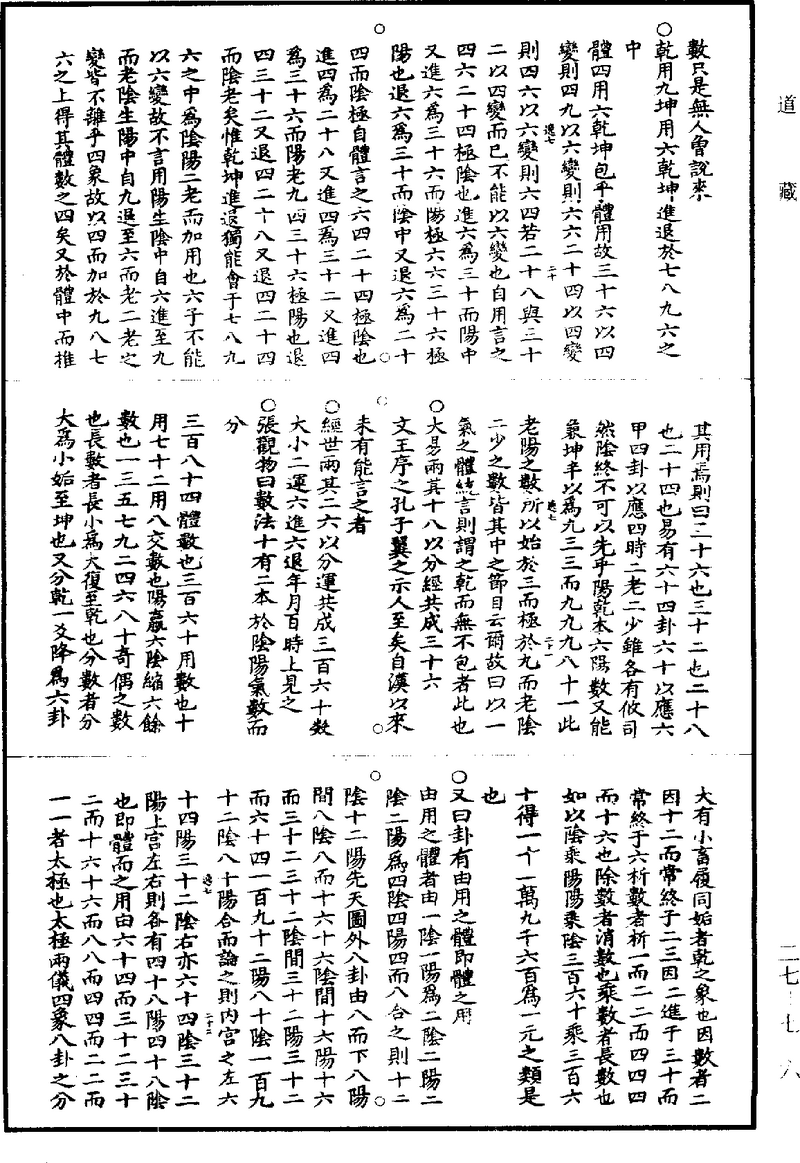 道藏
數只是無人曾說來
○乾用九坤用六乾坤進退於七八九六之
中
體四用六乾坤包乎體用故三十六以四
變則四九以六變則六六二十四以四變
則四六以六變則六四若二十八與三十
二以四變而已不能以六變也自用言之
四六二十四極陰也進六為三十而陽中
又進六為三十六而陽極六六三十六極
陽也退六為三十而陰中又退六為二十
四而陰極自體言之六四二十四極陰也
進四為二十八又進四為三十二又進四
為三十六而陽老九四三十六極陽也退
四三十二又退四二十八又退四二十四
而陰老矣惟乾坤進退獨能會于七八九
六之中為陰陽二老而加用也六子不能
以六變故不言用陽生陰中自六進至九
而老陰生陽中自九退至六而老二老之
變皆不離乎四象故以四而加於九八七
六之上得其體數之四矣又於體中而推
其用焉則曰三十六也三十二也二十八
也二十四也易有六十四卦六十以應六
甲四卦以應四時二老二少雖各有攸司
然陰終不可以先乎陽乾本六陽數又能
兼坤半以為九三三而九九九八十一此
老陽之數所以始於三而極於九而老陰
二少之數皆其中之節目云爾故曰以一
氣之體統言則謂之乾而無不包者此也
○大易兩其十八以分經共成三十六
文王序之孔子翼之示人至矣自漢以來
未有能言之者
○經世兩其二六以分運共成三百六十數
大小二運六進六退年月百時上見之
○張觀物曰數法十有二本於陰陽氣數而
分
三百八十四體數也三百六十用數也十
用七十二用八交數也陽嬴六陰縮六餘
數也一三五七九二四六八十奇偶之數
也長數者長小為大復至乾也分數者分
大為小姤至坤也又分乾一爻降為六卦
大有小畜履同姤者乾之象也因數者二
因十二而常終于二三因二進于三十而
常終于六析數者析一而二二而四四四
而十六也除數者消數也乘數者長數也
如以陰乘陽陽乘陰三百六十乘三百六
十得一十一萬九千六百為一元之類是
也
○又曰卦有由用之體即體之用
由用之體者由一陰一陽為二陰二陽二
陰二陽為四陰四陽四而八合之則十二
陰十二陽先天圖外八卦由八而下八陽
間八陰八而十六十六陰間十六陽十六
而三十二三十二陰間三十二陽三十二
而六十四一百九十二陽八十陰一百九
十二陰八十陽合而論之則內宮之左六
十四陽三十二陰右亦六十四陰三十二
陽上宮左右則各有四十八陽四十八陰
也即體而之用由六十四而三十二三十
二而十六十六而八八而四四而二二而
一一者太極也太極兩儀四象八卦之分